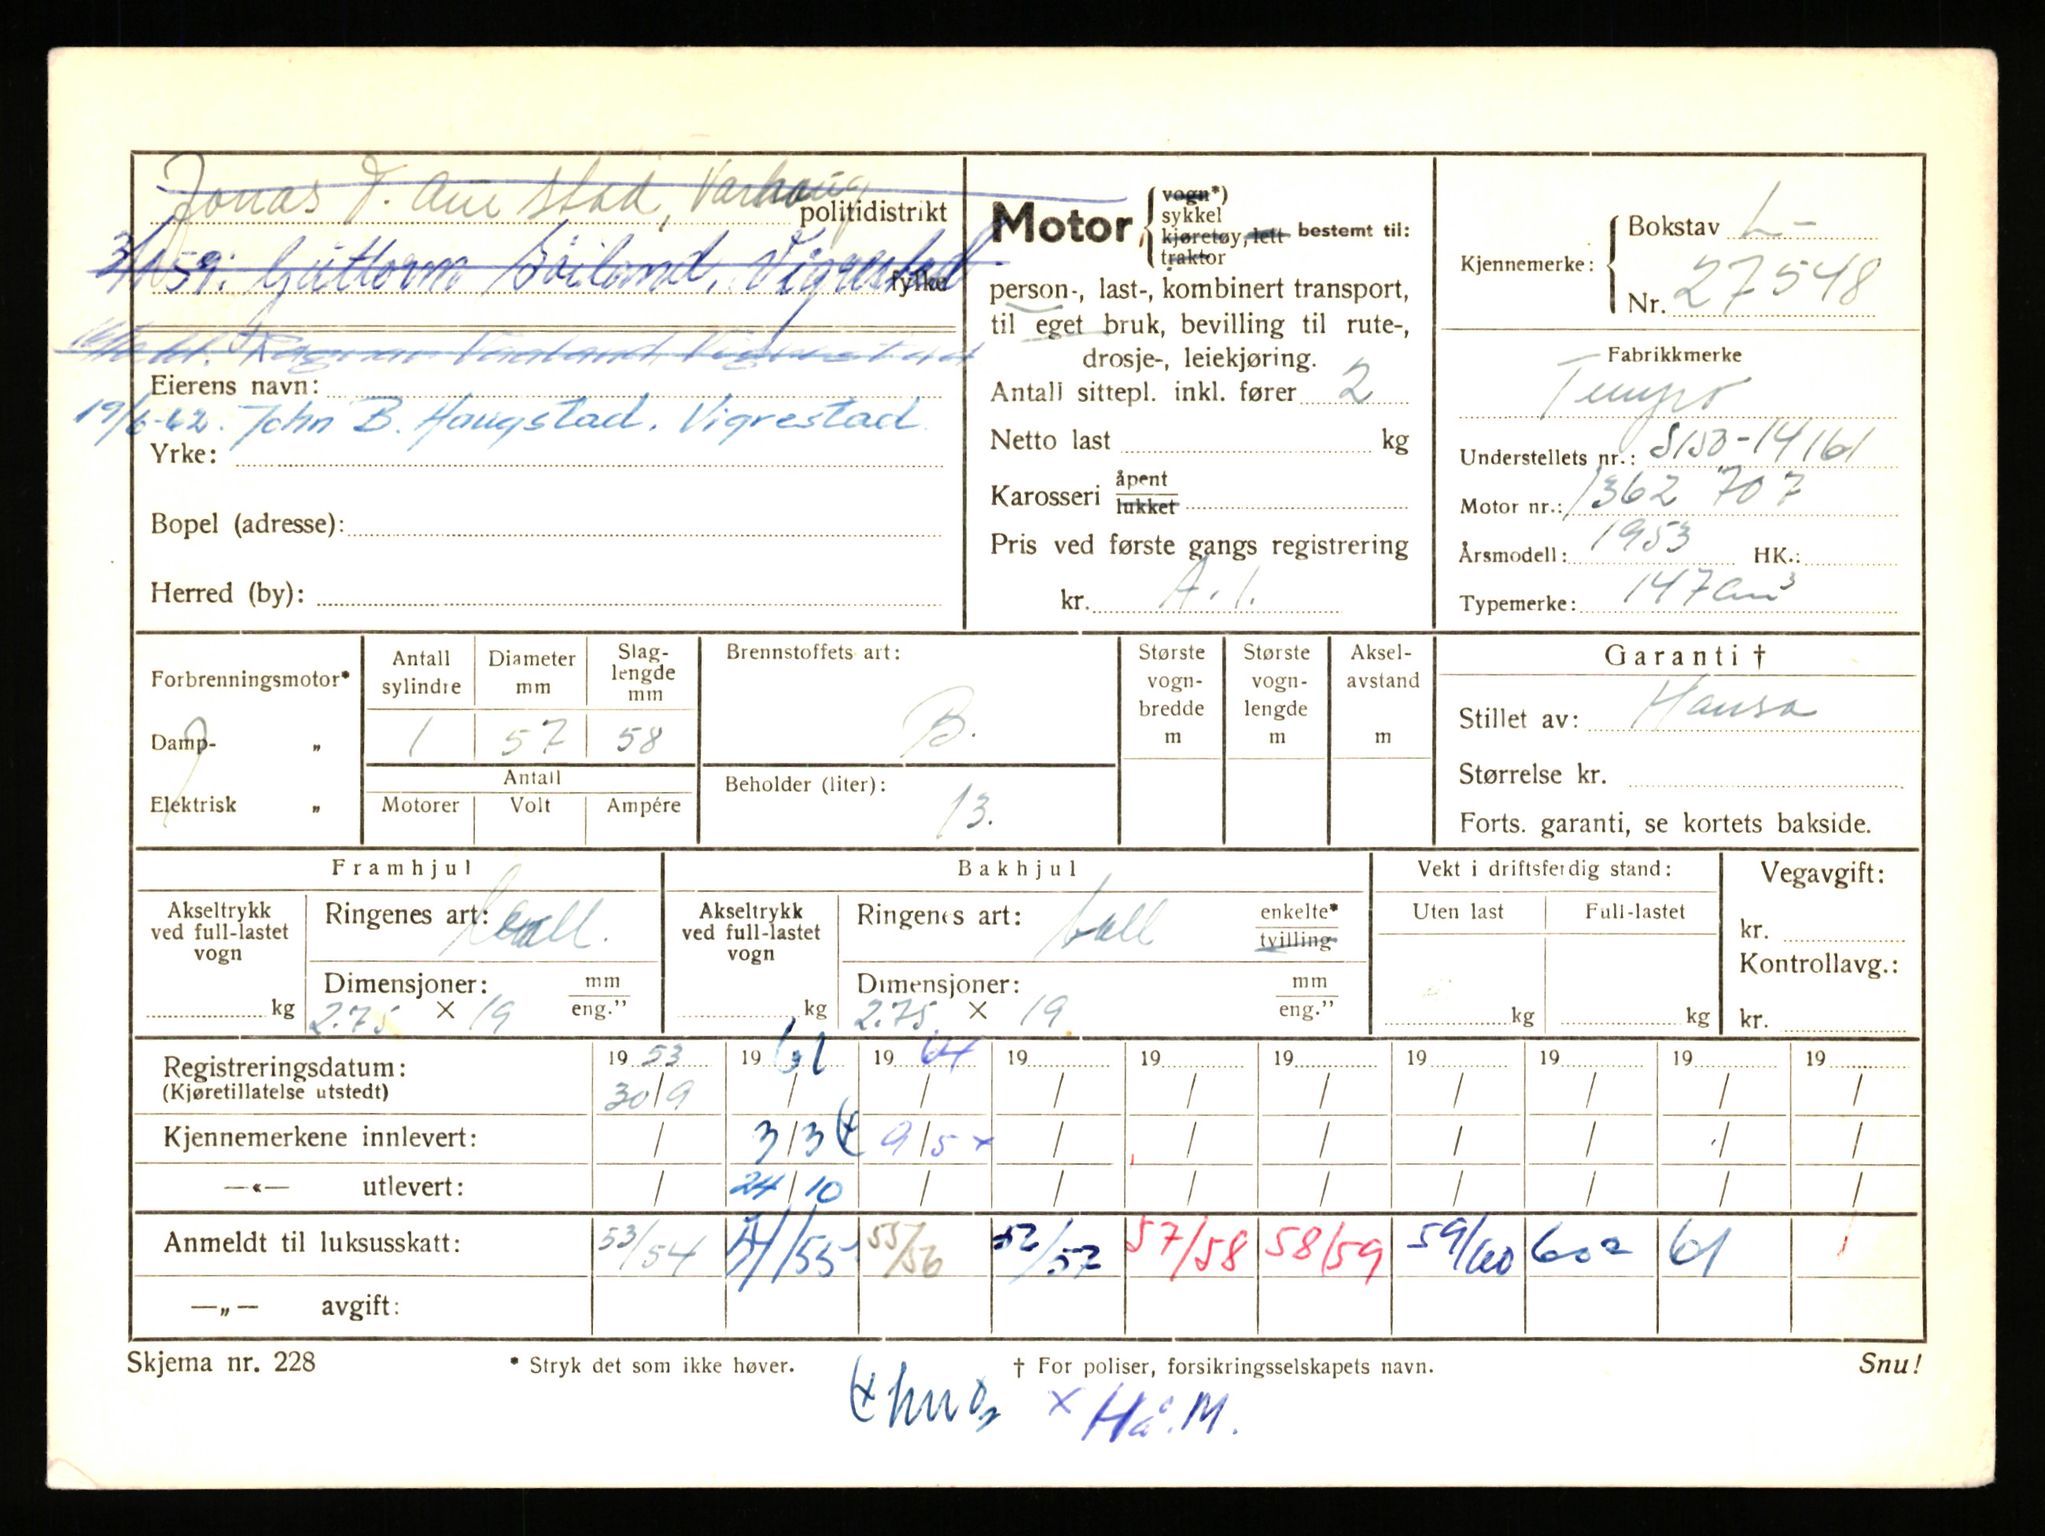 Jonas T. Aue stad, Varhaug politidistrikt
59: Guttorm Vigrestad fylke
Ragnar Vigrestad
Eierens navn:
19/6-62. John B. Haugstad. Vigrestad.
Yrke:
Bopel (adresse):
Herred (by):
Motor
vogn*)
sykkel
kjøretøy, lett
traktor
bestemt til:
person-, last-, kombinert transport,
til eget bruk, bevilling til rute-,
drosje-, leiekjøring.
Antall sittepl. inkl. fører 2
Netto last kg
Karosseri åpent
lukket
Pris ved første gangs registrering
kr. A. 1.
Kjennemerke: Bokstav L-
Nr. 27548
Fabrikkmerke
Tempo
Understellets nr.: S150-14161
Motor nr.: 1362 707
Årsmodell: 1953 HK.:
Typemerke: 147 cm³
Forbrenningsmotor*
Damp- „
Elektrisk „
Antall sylindre 1
Diameter mm 57
Slaglengde mm 58
Antall
Motorer Volt Ampére
Brennstoffets art:
B.
Beholder (liter):
13.
Største vognbredde m
Største vognlengde m
Akselavstand m
Garanti †
Stillet av: Hansa
Størrelse kr.
Forts. garanti, se kortets bakside.
Framhjul
Akseltrykk ved full-lastet vogn
kg
Ringenes art:
Dimensjoner: mm
2.75 X 19 eng.”
Bakhjul
Akseltrykk ved full-lastet vogn
kg
Ringenes art: ball enkelte*
tvilling
Dimensjoner: mm
2.75 X 19 eng.”
Vekt i driftsferdig stand:
Uten last Full-lastet
kg kg
Vegavgift:
kr.
Kontrollavg.:
kr.
Registreringsdatum: 19 53 19 61 19 64 19 19 19 19 19 19 19
(Kjøretillatelse utstedt) 30/9 / / / / / / / / /
Kjennemerkene innlevert: / 3/3 9/5 x / / / / / / /
—«— utlevert: / 24/10 / / / / / / / /
Anmeldt til luksusskatt: 53/54 54/55 55/56 57 57/58 58/59 59/60 60 61 /
—„— avgift:
Skjema nr. 228
* Stryk det som ikke høver.
† For poliser, forsikringsselskapets navn.
Snu!
x Hå. M.